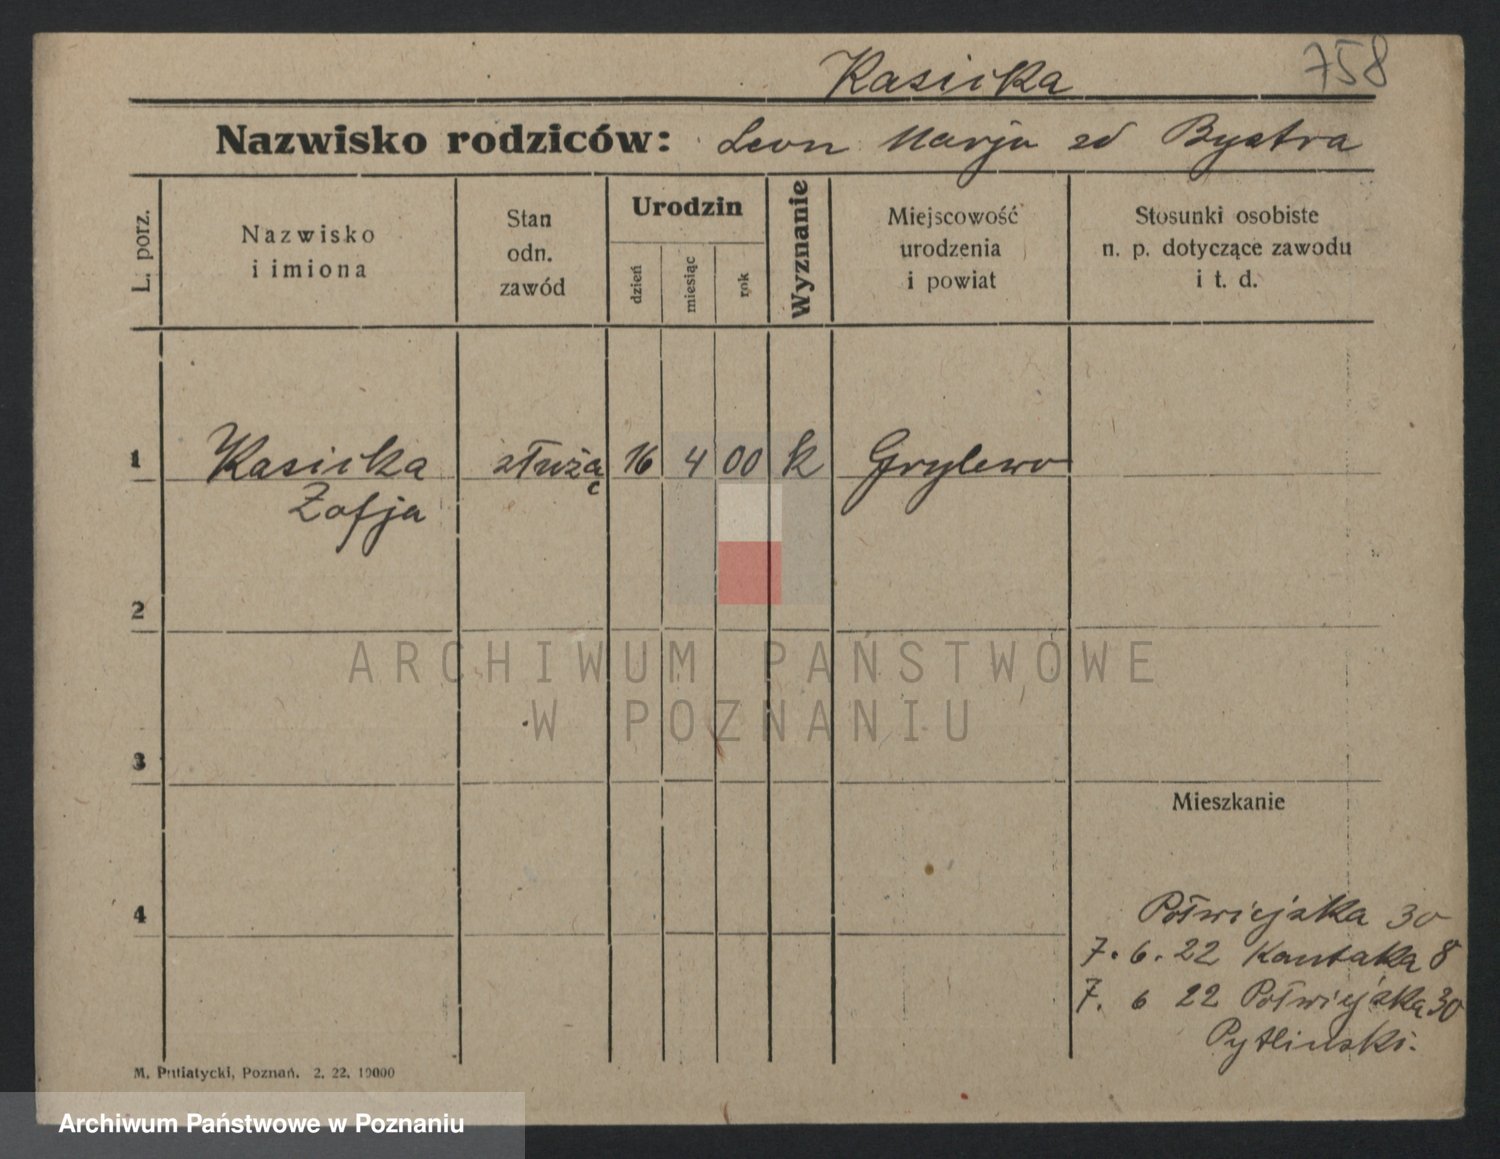 Kasicka 758
Nazwisko rodziców: Leon Marja zd Bystra
L. porz.
Nazwisko
i imiona
Stan
odn.
zawód
Urodzin
dzień
miesiąc
rok
Wyznanie
Miejscowość
urodzenia
i powiat
Stosunki osobiste
n. p. dotyczące zawodu
i t. d.
1 Kasicka służą 16 4 00 k Grylewo
Zofja c
2
ARCHIWUM PAŃSTWOWE
W POZNANIU
3
Mieszkanie
4 Półwiejska 30
7. 6. 22 Kantaka 8
7. 6 22 Półwiejska 30
Pytlinski.
M. Putiatycki, Poznań. 2. 22. 10000
Archiwum Państwowe w Poznaniu